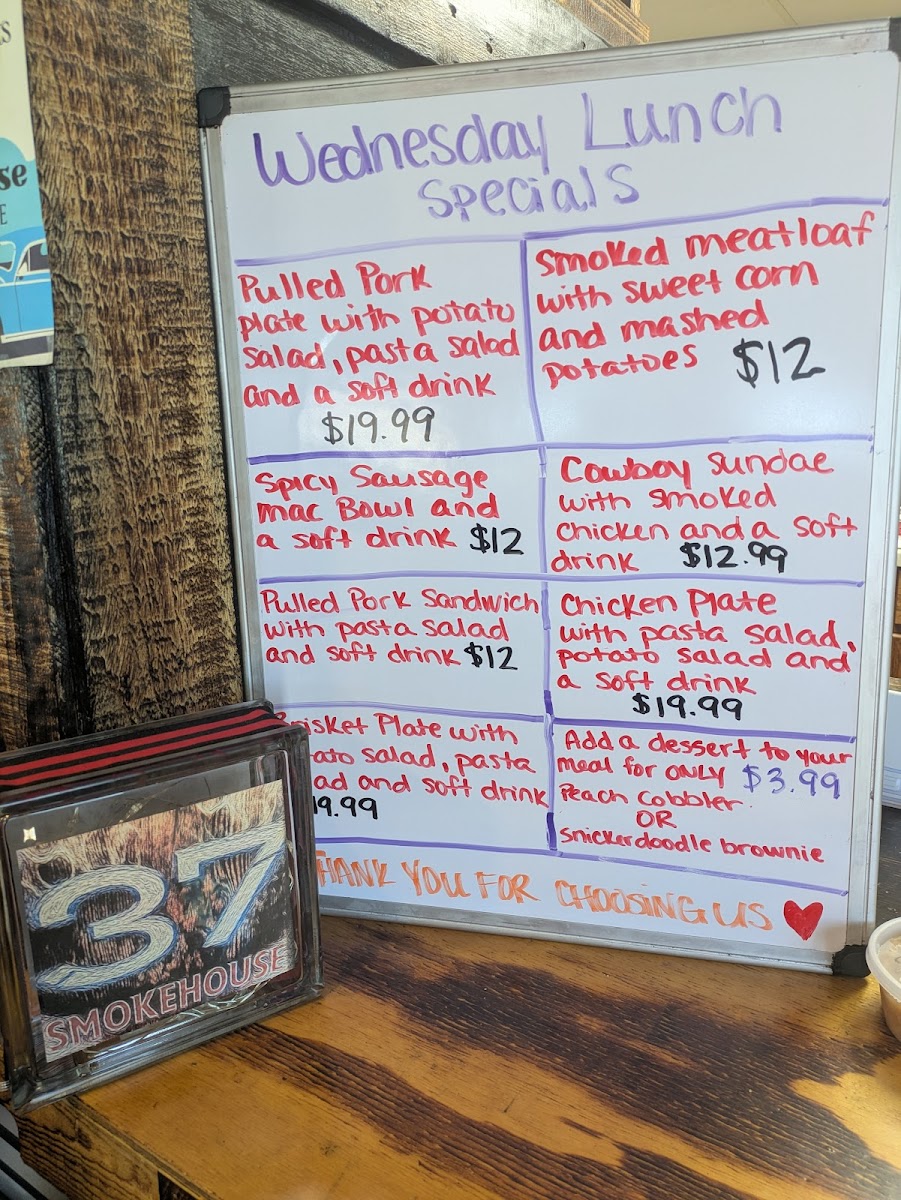 Wednesday Lunch
Specials
Pulled Pork
plate with potato
salad, pasta salad
and a soft drink
$19.99
Smoked meatloaf
with sweet corn
and mashed
potatoes $12
Spicy Sausage
mac Bowl and
a soft drink $12
Cowboy Sundae
with smoked
chicken and a soft
drink $12.99
Pulled Pork Sandwich
with pasta salad
and soft drink $12
Chicken Plate
with pasta salad,
potato salad and
a soft drink
$19.99
Brisket Plate with
ato salad, pasta
ad and soft drink
19.99
Add a dessert to your
meal for only $3.99
Peach Cobbler
OR
snickerdoodle brownie
THANK YOU FOR CHOOSING US
37
SMOKEHOUSE
se
E
S